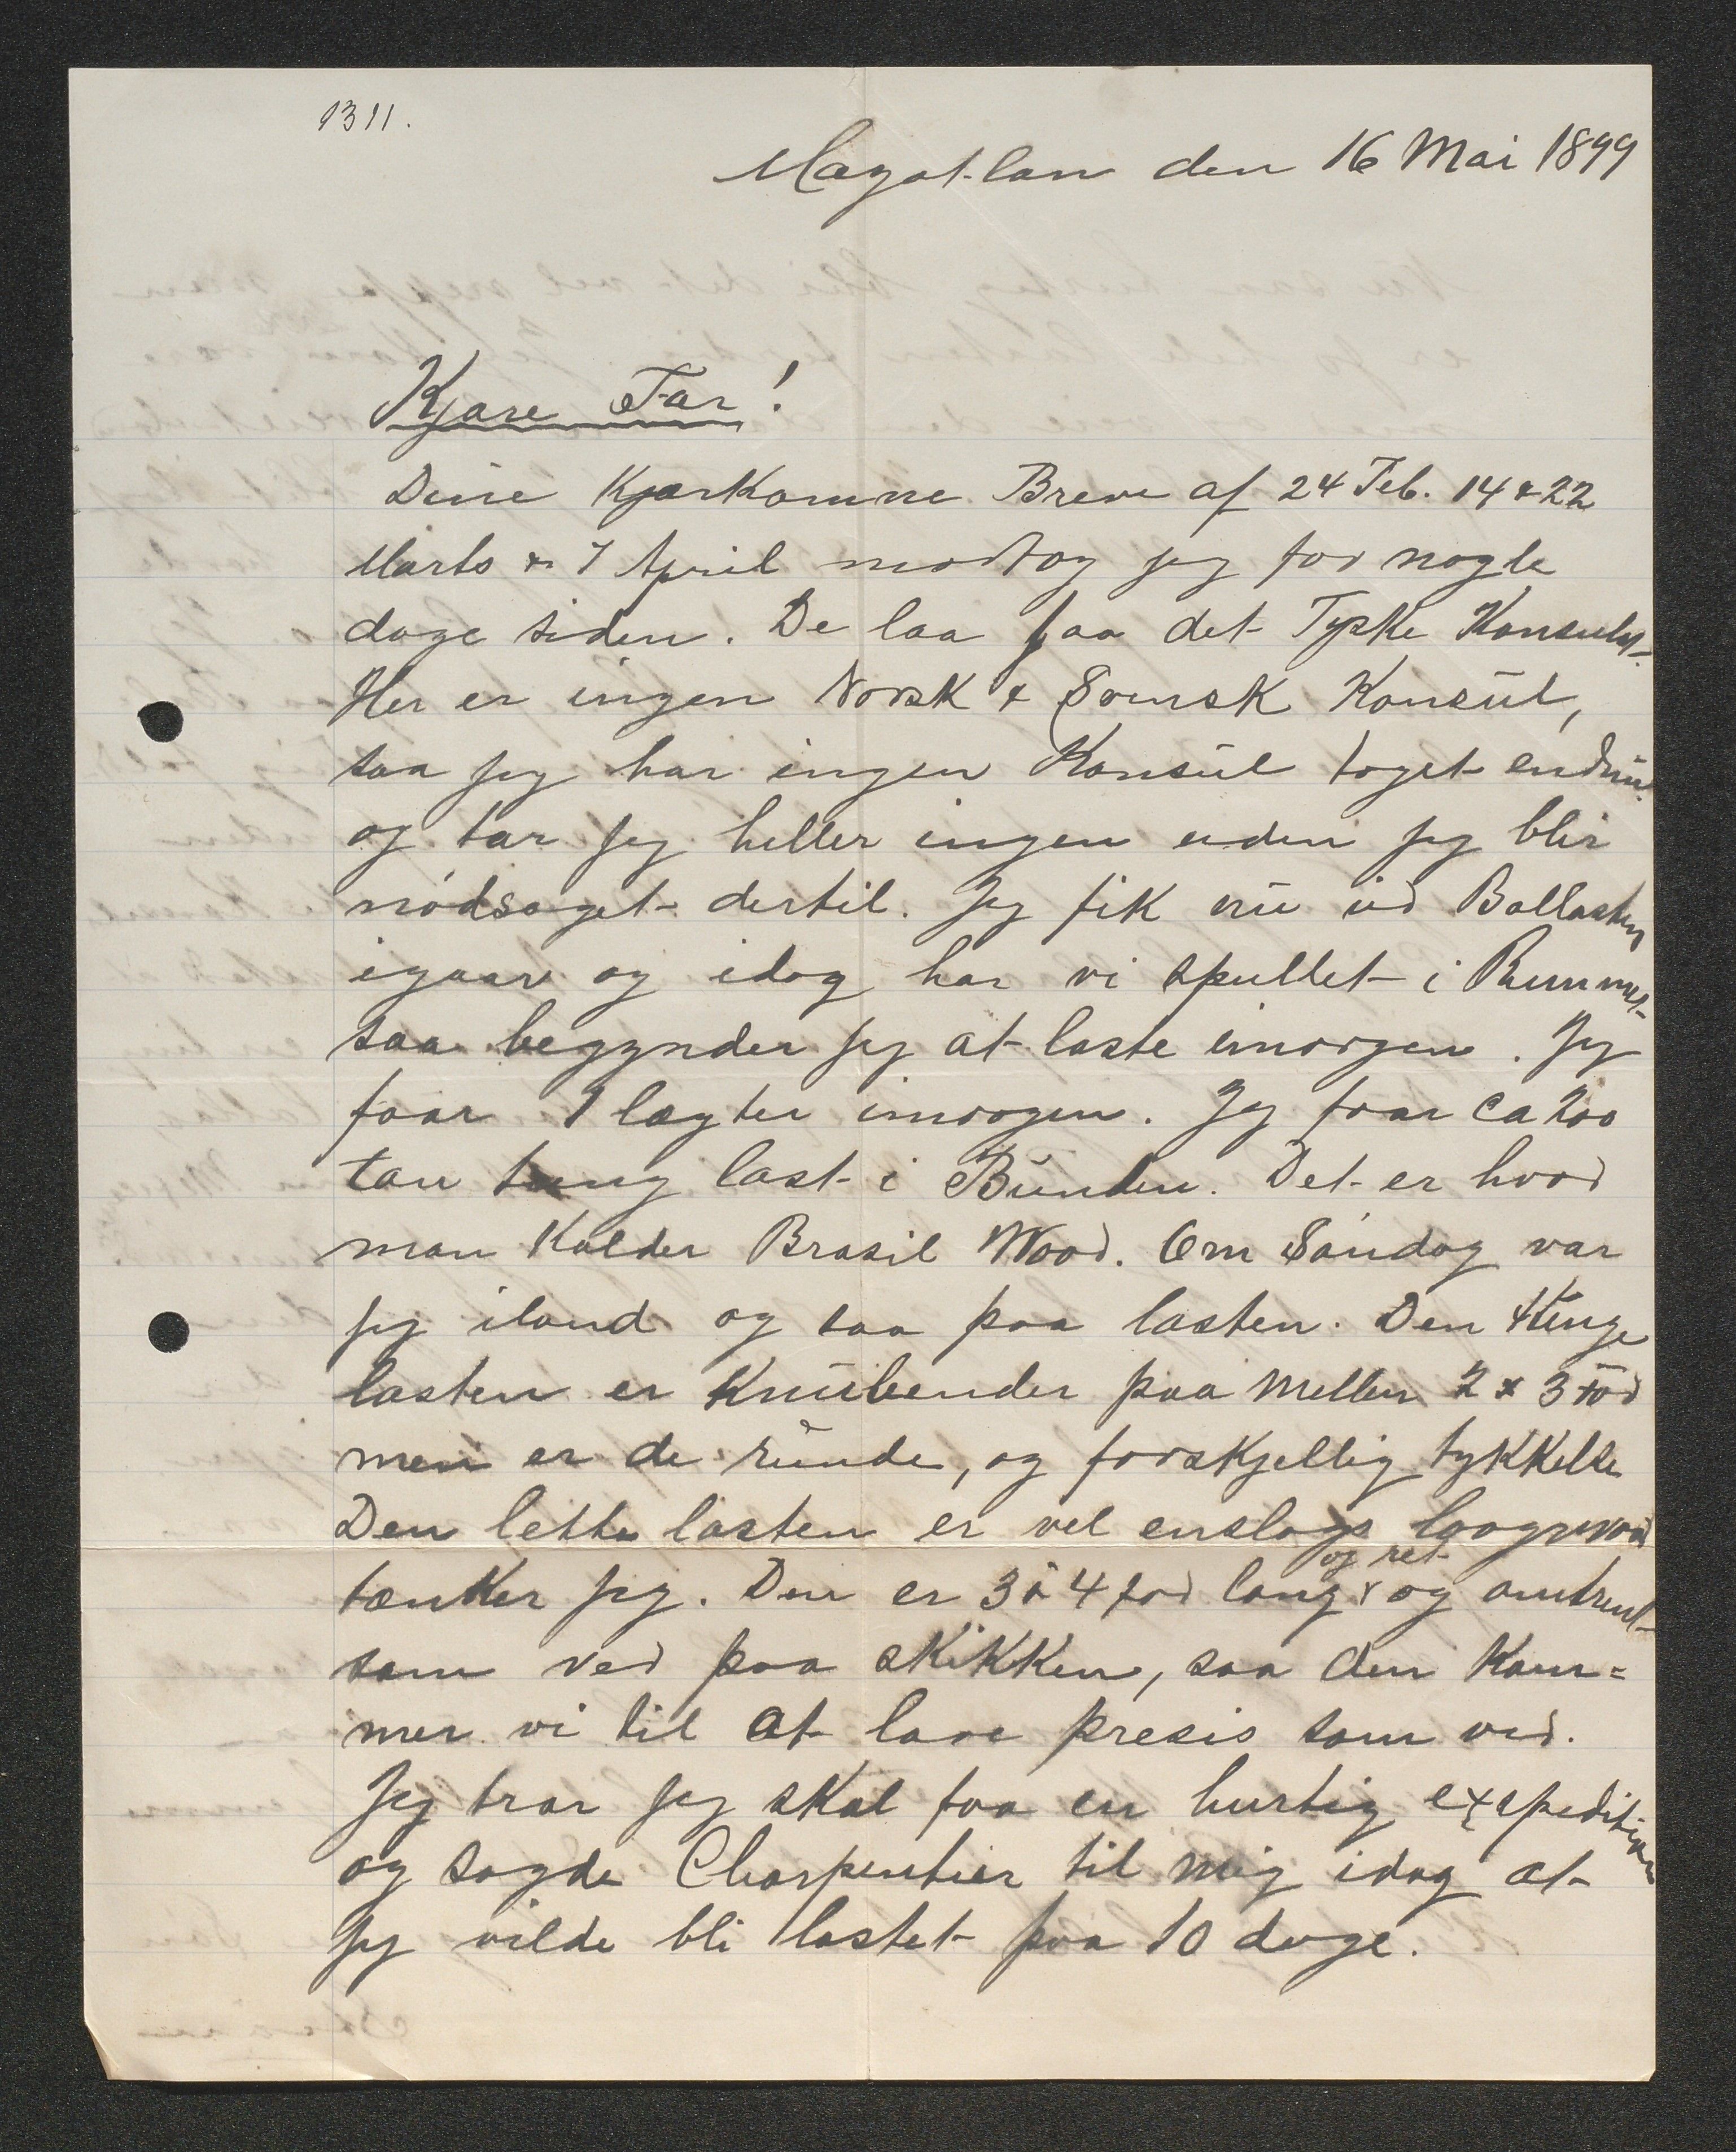 1311.
Mazat-lan den 16 Mai 1899
Kjære Far!
Dine Kjærkomne Breve af 24 Feb. 14 & 22
Marts & 7 April modtog jeg for nogle
dage siden. De laa paa det Tyske Konsulat.
Her er ingen Norsk & Svensk Konsul,
saa jeg har ingen Konsul taget endnu.
og tar jeg heller ingen uden jeg blir
nødsaget dertil. Jeg fik nu ud Ballasten
igaar og idag har vi spullet i Rummet
saa begynder jeg at laste imorgen. Jeg
faar 1 lægter imorgen. Jeg faar ca 200
ton tung last i Bunden. Det er hvad
man Kalder Brasil Wood. Om Søndag var
jeg iland og saa paa lasten. Den tunge
lasten er Knubender paa mellem 2 & 3 fod
men er de runde, og forskjellig tykkelse
Den lette lasten er vel enslags loogwood
tænker jeg. Den er 3 à 4 fod lang og ret og omtrent
som ved paa skikken, saa den Kom=
mer vi til at lave presis som ved.
Jeg tror jeg skal faa en hurtig expedition
og sagde Charpentier til mig idag at
jeg vilde bli lastet paa 10 dage.